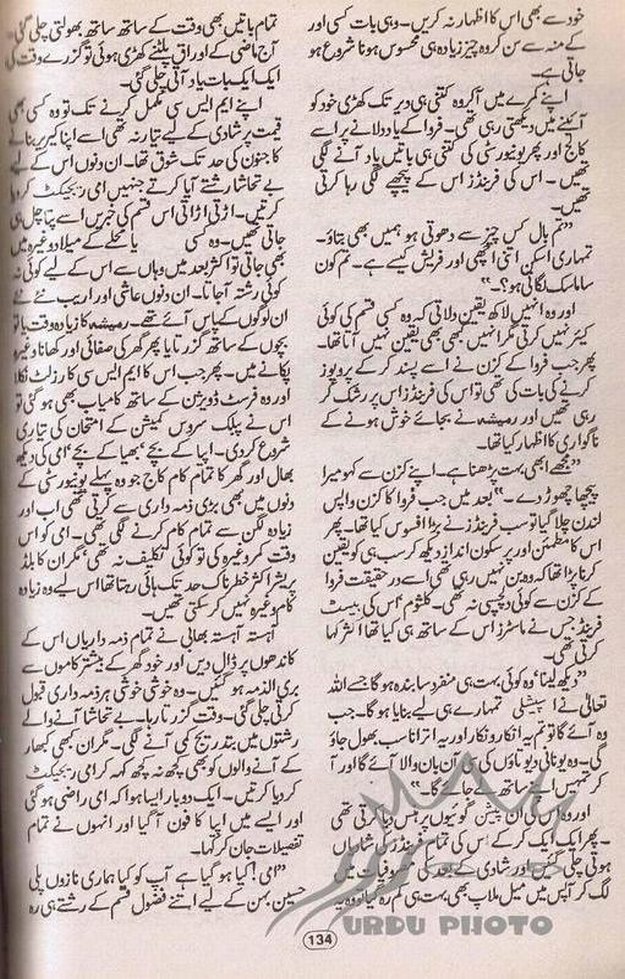 خود سے بھی اس کا اظہار نہ کریں۔ وہی بات کسی اور
کے منہ سے سن کر وہ چیز زیادہ ہی محسوس ہونا شروع ہو
جاتی ہے۔
اپنے کمرے میں آکر وہ کتنی ہی دیر تک کھڑی خود کو
آئینے میں دیکھتی رہی تھی۔ فروا کے یاد دلانے پر اسے
کالج اور پھر یونیورسٹی کی کتنی ہی باتیں یاد آنے لگی
تھیں۔ اس کی فرینڈز اس کے پیچھے لگی رہا کرتی
تھیں۔
”تم بال کس چیز سے دھوتی ہو ہمیں بھی بتاؤ۔
تمہاری اسکن اتنی اچھی اور فریش کیسے ہے۔ تم کون
سا ماسک لگاتی ہو؟۔“
اور وہ انہیں لاکھ یقین دلاتی کہ وہ کسی قسم کی کوئی
کیئر نہیں کرتی مگر انہیں کبھی بھی یقین نہیں آتا تھا۔
پھر جب فروا کے کزن نے اسے پسند کر کے پروپوز
کرنے کی بات کی تھی تو اس کی فرینڈز اس پر رشک کر
رہی تھیں اور رمیشہ نے بجائے خوش ہونے کے
ناگواری کا اظہار کیا تھا۔
”مجھے ابھی بہت پڑھنا ہے۔ اپنے کزن سے کہو میرا
پیچھا چھوڑ دے۔“ بعد میں جب فروا کا کزن واپس
لندن چلا گیا تو سب فرینڈز نے بڑا افسوس کیا تھا۔ پھر
اس کا مطمئن اور پرسکون انداز دیکھ کر سب ہی کو یقین
کرنا پڑا تھا کہ وہ بن نہیں رہی تھی اسے درحقیقت فروا
کے کزن سے کوئی دلچسپی نہ تھی۔ کلثوم‘ اس کی بیسٹ
فرینڈ جس نے ماسٹرز اس کے ساتھ ہی کیا تھا اکثر کہا
کرتی تھی۔
”دیکھ لینا‘ وہ کوئی بہت ہی منفرد سا بندہ ہوگا جسے اللہ
تعالیٰ نے اسپیشلی تمہارے ہی لیے بنایا ہوگا۔ جب
وہ آئے گا تو تم یہ انکار ونکار اور یہ اترانا سب بھول جاؤ
گی۔ وہ یونانی دیوتاؤں کی سی آن بان والا آئے گا اور آ
کر تمہیں اپنے ساتھ لے جائے گا۔“
اور وہ اس کی ان پیشن گوئیوں پر ہنس دیا کرتی تھی
۔ پھر ایک ایک کر کے اس کی تمام فرینڈز کی شادیاں
ہوتی چلی گئیں اور شادی کے بعد کی مصروفیات میں
لگ کر آپس میں میل ملاپ بھی بہت ہی کم رہ گیا تو وہ یہ
تمام باتیں بھی وقت کے ساتھ ساتھ بھولتی چلی گئی
آج ماضی کے اوراق پلٹنے کھڑی ہوئی تو گزرے وقت کی
ایک ایک بات یاد آتی چلی گئی۔
اپنے ایم ایس سی مکمل کرنے تک تو وہ کسی بھی
قیمت پر شادی کے لیے تیار نہ تھی اسے اپنا کیریر بنانے
کا جنون کی حد تک شوق تھا۔ ان دنوں اس کے لیے
بے تحاشا رشتے آیا کرتے جنہیں امی ریجیکٹ کر دیا
کرتیں۔ اڑتی اڑاتی اس قسم کی خبریں اسے پتا چل ہی
جاتی تھیں۔ وہ کسی یا محلے کے میلاد وغیرہ میں
بھی جاتی تو اکثر بعد میں وہاں سے اس کے لیے کوئی نہ
کوئی رشتہ آجاتا۔ ان دنوں عاشی اور اریب نئے نئے
ان لوگوں کے پاس آئے تھے۔ رمیشہ کا زیادہ وقت یا تو
بچوں کے ساتھ گزرتا یا پھر گھر کی صفائی اور کھانا وغیرہ
پکانے میں۔ پھر جب اس کا ایم ایس سی کا رزلٹ نکلا
اور وہ فرسٹ ڈویژن کے ساتھ کامیاب بھی ہو گئی تو
اس نے پبلک سروس کمیشن کے امتحان کی تیاری
شروع کر دی۔ اپیا کے بچے‘ بھیا کے بچے‘ امی کی دیکھ
بھال اور گھر کا تمام کام کاج جو وہ پہلے یونیورسٹی کے
دنوں میں بھی بڑی ذمہ داری سے کرتی تھی اب اور
زیادہ لگن سے تمام کام کرنے لگی تھی۔ امی کو اس
وقت کمر وغیرہ کی تو کوئی تکلیف نہ تھی‘ مگر ان کا بلڈ
پریشر اکثر خطرناک حد تک ہائی رہتا تھا اس لیے وہ زیادہ
کام وغیرہ نہیں کر سکتی تھیں۔
آہستہ آہستہ بھابی نے تمام ذمہ داریاں اس کے
کاندھوں پر ڈال دیں اور خود گھر کے بیشتر کاموں سے
بری الذمہ ہو گئیں۔ وہ خوشی خوشی ہر ذمہ داری قبول
کرتی چلی گئی۔ وقت گزرتا رہا۔ بے تحاشا آنے والے
رشتوں میں بتدریج کمی آنے لگی۔ مگر ان کبھی کبھار
کے آنے والوں کو بھی کچھ نہ کچھ کہہ کر امی ریجیکٹ
کر دیا کرتیں۔ ایک دو بار ایسا ہوا کہ امی راضی ہو گئی
اور ایسے میں اپیا کا فون آگیا اور انہوں نے تمام
تفصیلات جان کر کہا۔
”امی! کیا ہو گیا ہے آپ کو کیا ہماری نازوں پلی
حسین بہن کے لیے اتنے فضول قسم کے رشتے ہی رہ
134
URDU PHOTO